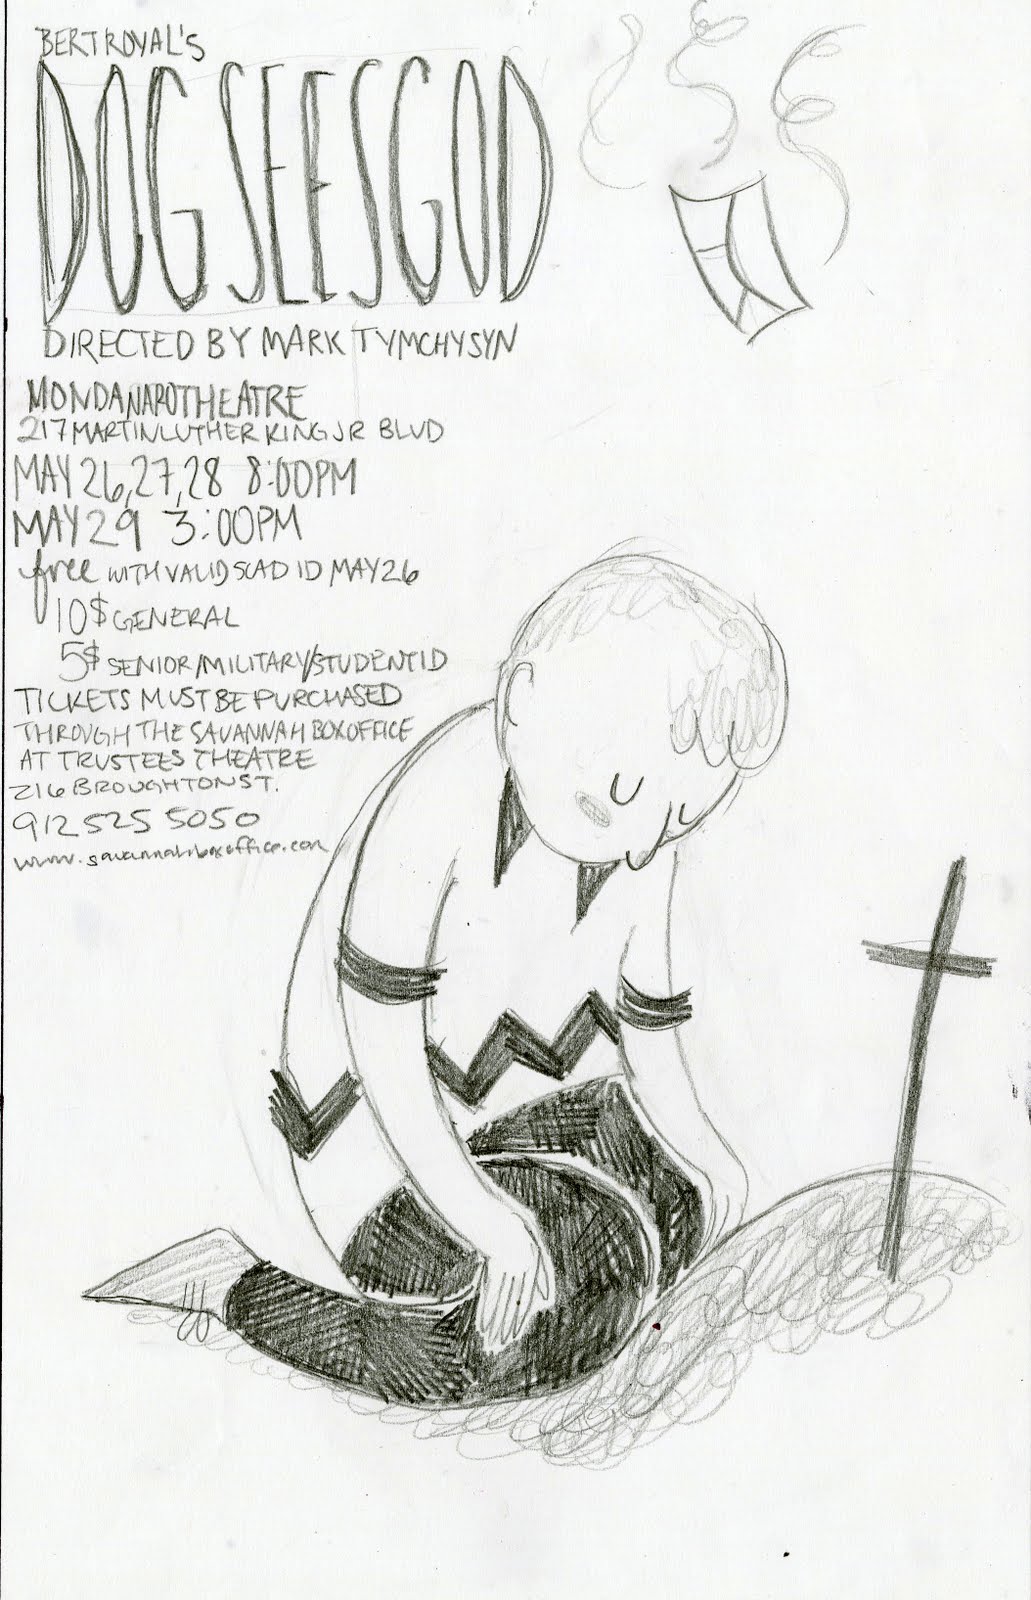 BERT ROYAL'S
DOG SEES GOD
DIRECTED BY MARK TYMCHYSYN
MONDANARO THEATRE
217 MARTIN LUTHER KING JR BLVD
MAY 26, 27, 28 8:00PM
MAY 29 3:00PM
free WITH VALID SCAD ID MAY 26
10$ GENERAL
5$ SENIOR/MILITARY/STUDENT ID
TICKETS MUST BE PURCHASED
THROUGH THE SAVANNAH BOX OFFICE
AT TRUSTEES THEATRE
216 BROUGHTON ST.
912 525 5050
www.savannahboxoffice.com